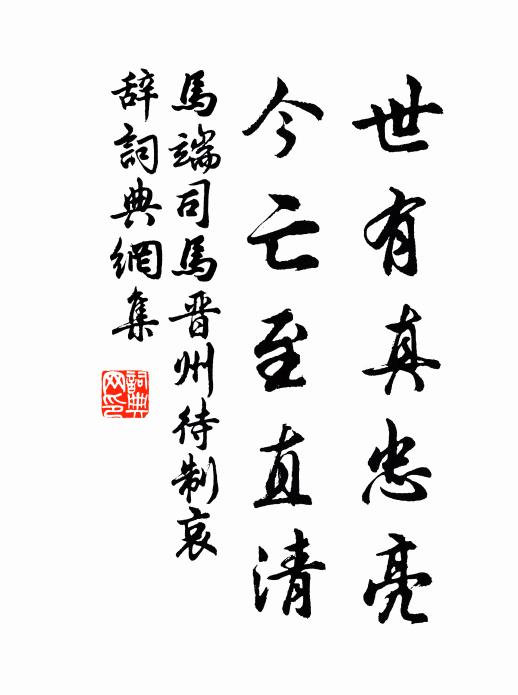 世有真忠亮
今亡至直清
馬端司馬晋州待制哀
辞詞典網集
詞典网印